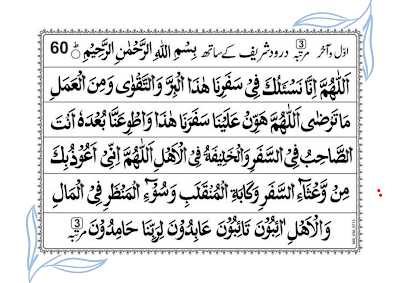 اوّل و آخر 3 مرتبہ درود شریف کے ساتھ بِسْمِ اللهِ الرَّحْمٰنِ الرَّحِيْمِ ط 60
اَللّٰهُمَّ اِنَّا نَسْئَلُكَ فِيْ سَفَرِنَا هٰذَا الْبِرَّ وَالتَّقْوٰى وَمِنَ الْعَمَلِ
مَا تَرْضٰى اَللّٰهُمَّ هَوِّنْ عَلَيْنَا سَفَرَنَا هٰذَا وَاطْوِعَنَّا بُعْدَهٗ اَنْتَ
الصَّاحِبُ فِي السَّفَرِ وَالْخَلِيْفَةُ فِي الْاَهْلِ اَللّٰهُمَّ اِنِّيْ اَعُوْذُ بِكَ
مِنْ وَّعْثَآءِ السَّفَرِ وَكَابَةِ الْمُنْقَلَبِ وَسُوْٓءِ الْمَنْظَرِ فِي الْمَالِ
وَالْاَهْلِ اٰئِبُوْنَ تَائِبُوْنَ عَابِدُوْنَ لِرَبِّنَا حَامِدُوْنَ 3 مرتبہ